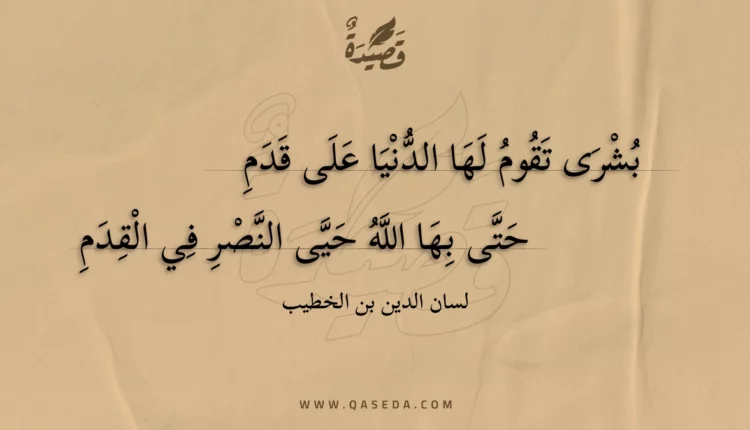 قَصِيدَةٌ
بُشْرَى تَقُومُ لَهَا الدُّنْيَا عَلَى قَدَمِ
حَتَّى بِهَا اللَّهُ حَيَّى النَّصْرِ فِي الْقِدَمِ
لسان الدين بن الخطيب
WWW.QASEDA.COM